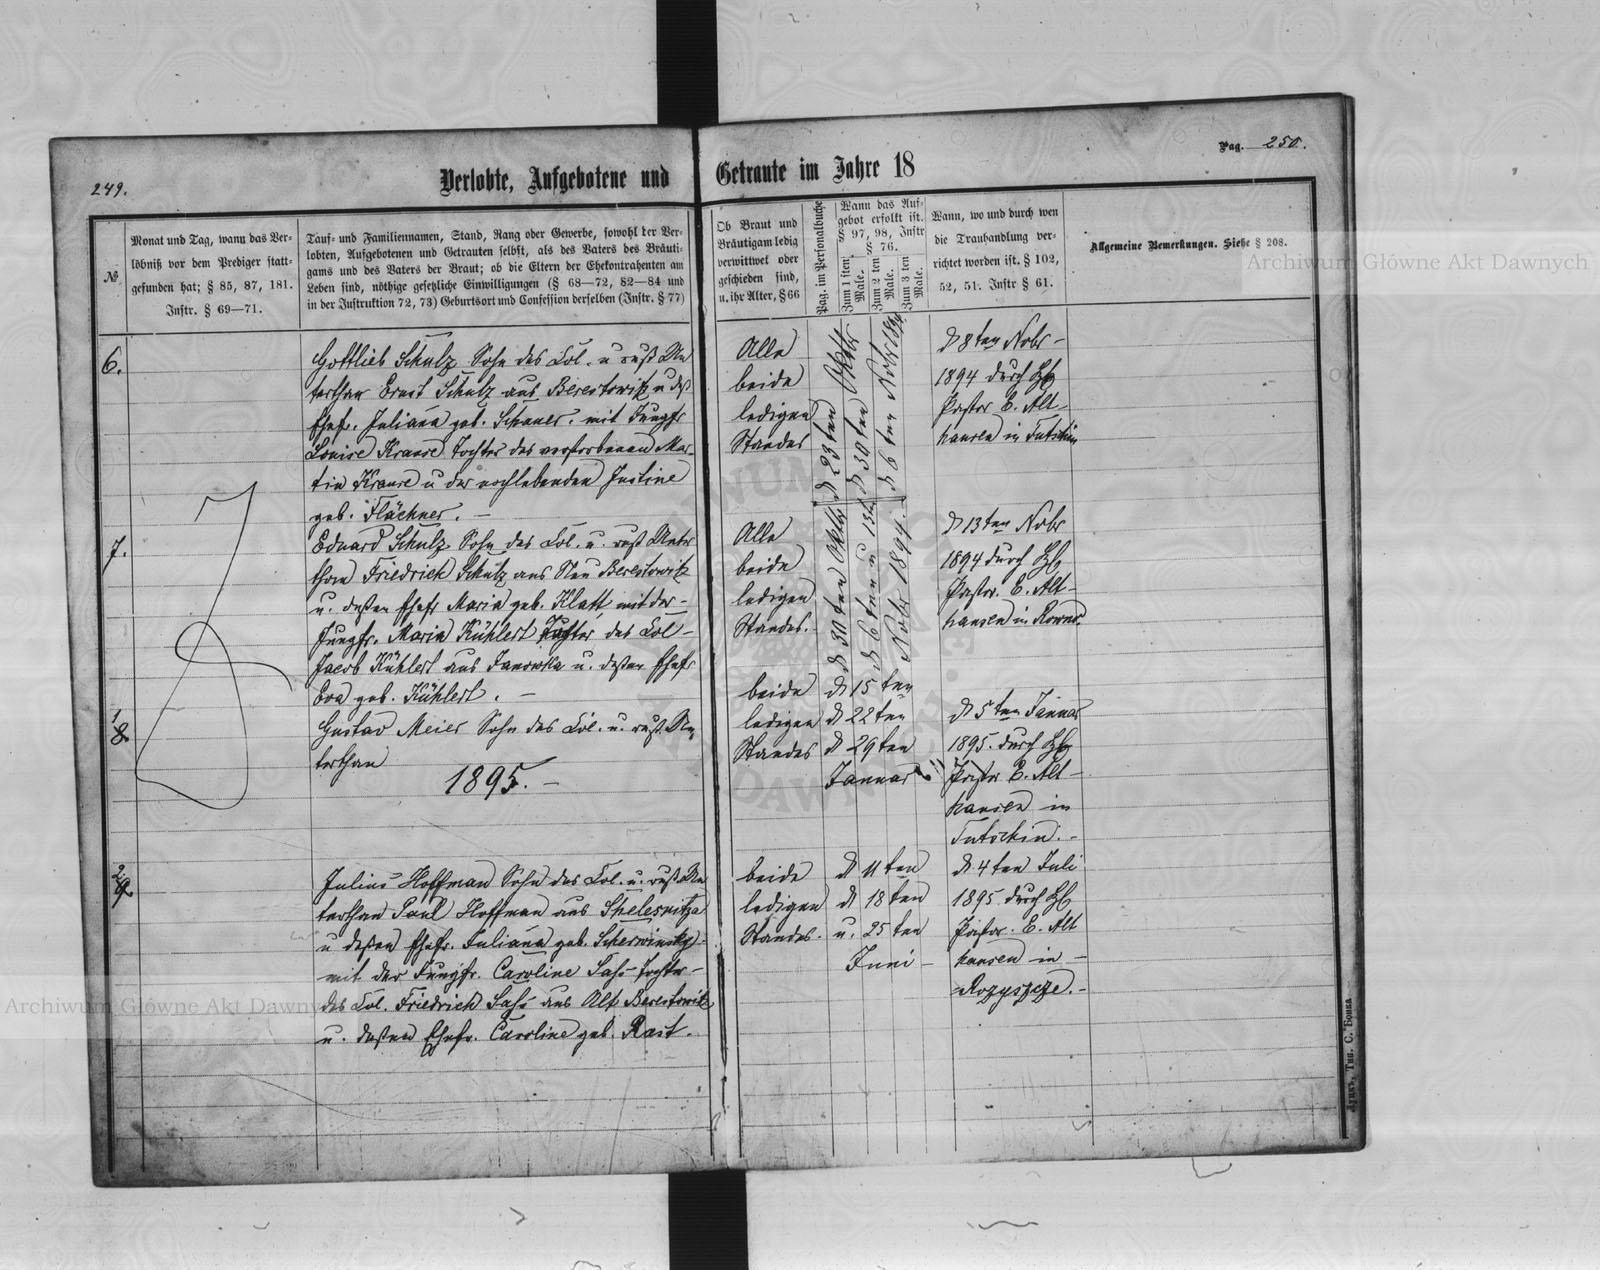 249.
Verlobte, Aufgebotene und
Getraute im Jahre 18
Pag. 250.
№
Monat und Tag, wann das Ver-
löbniß vor dem Prediger statt-
gefunden hat; § 85, 87, 181.
Instr. § 69—71.
Tauf- und Familiennamen, Stand, Rang oder Gewerbe, sowohl der Ver-
lobten, Aufgebotenen und Getrauten selbst, als des Vaters des Bräuti-
gams und des Vaters der Braut; ob die Eltern der Ehekontrahenten am
Leben sind, nöthige gesetzliche Einwilligungen (§ 68—72, 82—84 und
in der Instruktion 72, 73) Geburtsort und Confession derselben (Instr. § 77)
Ob Braut und
Bräutigam ledig
verwittwet oder
geschieden sind,
u. ihr Alter, § 66
Pag. im Personalbuche
Wann das Auf-
gebot erfolkt ist.
§ 97, 98, Instr
§ 76.
Zum 1 ten
Male.
Zum 2 ten
Male.
Zum 3 ten
Male.
Wann, wo und durch wen
die Trauhandlung ver-
richtet worden ist. § 102,
52, 51. Instr § 61.
Allgemeine Bemerkungen. Siehe § 208.
6.
Gottlieb Schulz Sohn des Col. u. ruß. Un
terthan Ernst Schulz aus Berestowitz u deß
Ehefr. Juliana geb. Schauer. mit Jungfr
Louise Krause Tochter des verstorbenen Mar-
tin Krause u der nochlebenden Justine
geb. Fläckner. —
Alle
beide
ledigen
Standes
d 23 ten Oktbr
d 30 ten
d 6 ten Nobr
d 8 ten Nobr —
1894 durch H
Pastor E. Alt-
hausen in Tutschin
7.
Eduard Schulz Sohn des Col. u. ruß Unter
than Friedrich Schulz aus Neu Berestowitz
u. deßen Ehefr Maria geb. Klatt mit der —
Jungfr. Maria Kühlert Tochter des Col —
Jacob Kühlert aus Janowka u. deßen Ehefr
Eva geb. Kühlert. —
Alle
beide
ledigen
Standes.
d 30 ten Oktbr
d 6 ten u 13 t
Nobr 1894.
d 13 ten Nobr
1894 durch H
Pastor. E. Alt-
hausen in Rowno.
1
8
Gustav Meier Sohn des Col. u. ruß. Un
terthan
1895. —
beide
ledigen
Standes
d 15 ten
d 22 ten
d 29 ten
Januar
d 5 ten Januar
1895. durch H
Pastor E. Alt —
hausen in
Tutschin. —
2
9
Julius Hoffman Sohn des Col. u. ruß Un
terthan Paul Hoffman aus Shelesnitza
u deßen Ehefr. Juliana geb. Scherwinsky —
mit der Jungfr. Caroline Sasś Tochter —
des Col. Friedrich Sasś aus Alt Berestowitz
u. deßen Ehefr. Caroline geb. Rast.
beide
ledigen
Standes.
d 11 ten
d 18 ten
u. 25 ten
Juni —
d. 4 ten Juli
1895 durch H
Pastor. E. Alt
hausen in —
Rozyszcze. —
Луцкъ, Тип. С. Бонка
Archiwum Główne Akt Dawnych
Archiwum Główne Akt Dawnych